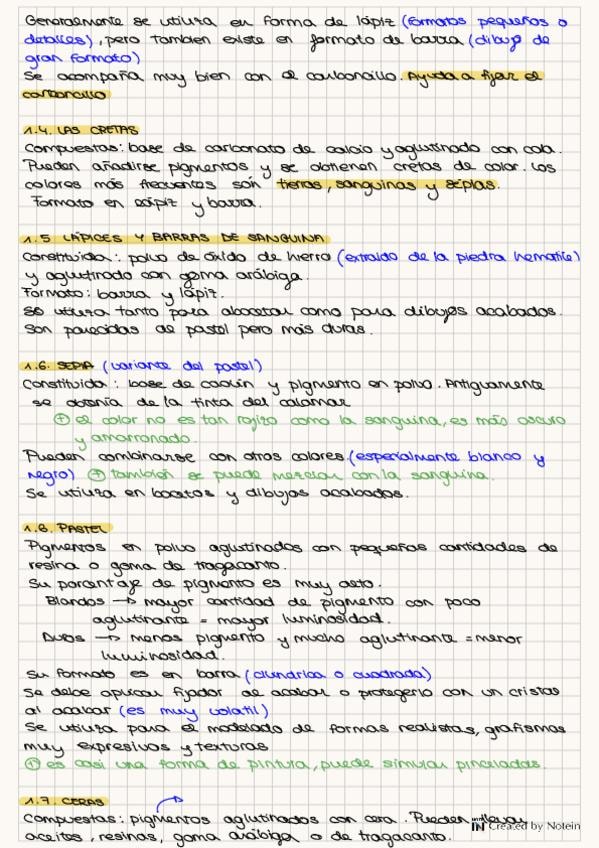 Generalmente se utiliza en forma de lápiz (formatos pequeños o
detalles), pero tambien existe en formato de barra (dibujo de
gran formato)
Se acompaña muy bien con el carboncillo. Ayuda a fijar el
carboncillo
1.4. LAS CRETAS
Compuestas: base de carbonato de calcio y aglutinado con cola.
Pueden añadirse pigmentos y se obtienen cretas de color. Los
colores más frecuentes són tierras, sanguinas y sepias.
Formato en lápiz y barra.
1.5 LÁPICES Y BARRAS DE SANGUINA
Constituida: polvo de óxido de hierro (extraido de la piedra hematite)
y aglutinado con goma arábiga.
Formato: barra y lápiz.
Se utiliza tanto para abocetar como para dibujos acabados.
Son parecidas de pastel pero más duras.
1.6. SEPIA (variante del pastel)
Constituida: base de caolín y pigmento en polvo. Antiguamente
se obtenía de la tinta del calamar
+ el color no es tan rojizo como la sanguina, es más oscuro
y amarronado.
Pueden combinarse con otros colores. (especialmente blanco y
negro) + también se puede mezclar con la sanguina.
Se utiliza en bocetos y dibujos acabados.
1.6. PASTEL
Pigmentos en polvo aglutinados con pequeñas cantidades de
resina o goma de tragacanto.
Su porcentaje de pigmento es muy alto.
Blandos → mayor cantidad de pigmento con poco
aglutinante = mayor luminosidad.
Duros → menos pigmento y mucho aglutinante = menor
luminosidad.
Su formato es en barra (cilíndrica o cuadrada)
Se debe aplicar fijador al acabar o protegerlo con un cristal
al acabar (es muy volatil)
Se utiliza para el modelado de formas realistas, grafismos
muy expresivos y texturas
+ es casi una forma de pintura, puede simular pinceladas.
1.7. CERAS
Compuestas: pigmentos aglutinados con cera. Pueden llevar
aceites, resinas, goma arábiga o de tragacanto.
Created by Notein